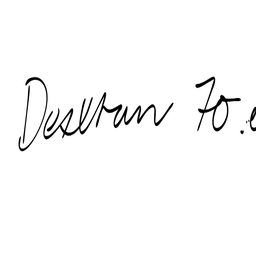 Dextran 70.